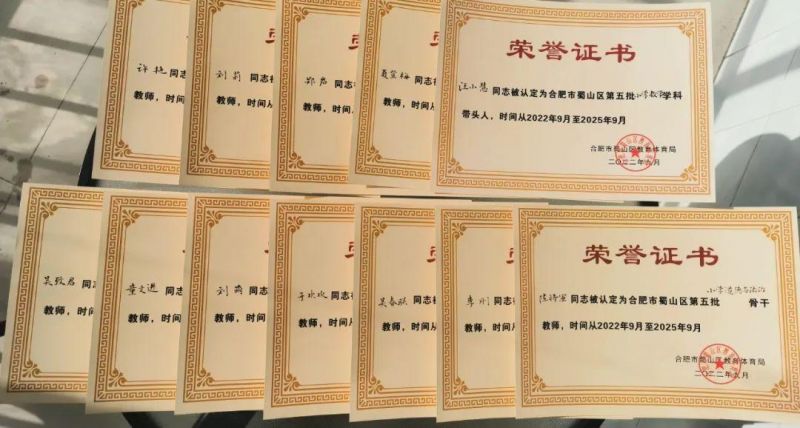 许艳同
教师，时间从
刘莉同
教师，时间从
郑君同
教师，时间从
夏莹梅同
教师，时间从
荣誉证书
汪小慧同志被认定为合肥市蜀山区第五批小学数学学科
带头人，时间从2022年9月至2025年9月
合肥市蜀山区教育体育局
二〇二二年九月
吴致君同
教师，时
童文进同
教师，时间
刘萌同
教师，时间
于欢欢同志
教师，时间从
吴春联同志
教师，时间从
李刚同志
教师，时间从
荣誉证书
小学道德与法治
同志被认定为合肥市蜀山区第五批 骨干
教师，时间从2022年9月至2025年9月
合肥市蜀山区教育体育局
二〇二二年九月